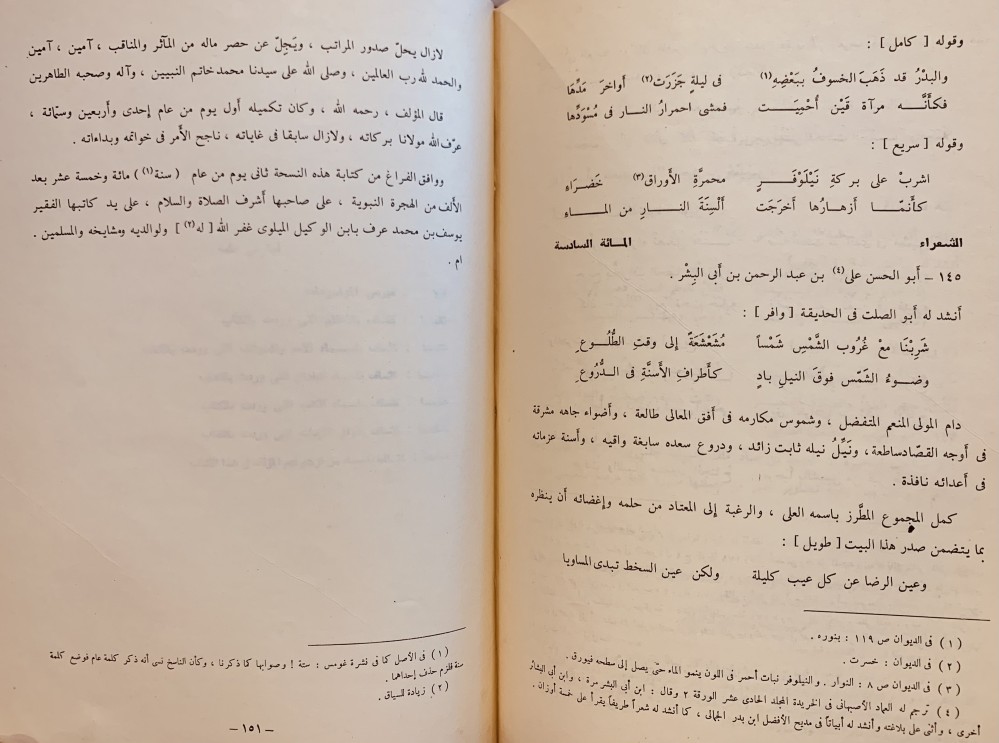 وقوله [ كامل ] :
والبدْرُ قد ذَهَبَ الخسوفُ ببَعْضِهِ (١) فى ليلةٍ جَزَرَت (٢) أواخرَ مَدِّهَا
فكأَنَّــه مرآة قَيْن أُحْمِيَــت فمشى احمرارُ النــار فى مُسْوَدِّها
وقوله [ سريع ] :
اشربْ على بركةِ نَيْلَوْفَــرٍ محمرَّةِ الأوراق (٣) خَضــرَاءِ
كأَنمَّــا أزهــارُها أخرَجَت أَلْسِنَةَ النــارِ من المــاءِ
الشعراء المائة السادسة
١٤٥ – أبو الحسن على (٤) بن عبد الرحمن بن أبى البِشْر .
أنشد له أبو الصلت فى الحديقة [ وافر ] :
شَرِبْنَا معْ غُرُوب الشَّمْسِ شَمْساً مُشَعْشَعَةً إلى وقتِ الطُّلُــوعِ
وضــوءُ الشَّمْس فوقَ النيلِ بادٍ كأطرافِ الأَسنَّةِ فى الدُّرُوعِ
دام المولى المنعم المتفضل ، وشموس مكارمه فى أفق المعالى طالعة ، وأضواء جاهه مشرقة
فى أوجه القصّاد ساطعة ، ونَيِّلُ نيله ثابت زائد ، ودروع سعده سابغة واقيه ، وأسنة عزماته
فى أعدائه نافذة .
كمل المجموع المطَّرز باسمه العلى ، والرغبة إلى المعتاد من حلمه وإغضائه أن ينظره
بما يتضمن صدر هذا البيت [ طويل ] :
وعين الرضا عن كل عيب كليلة ولكن عين السخط تبدى المساويا
(١) فى الديوان ص ١١٩ : بنوره .
(٢) فى الديوان : خسرت .
(٣) فى الديوان ص ٨ : النوار . والنيلوفر نبات أحمر فى اللون ينمو الماء حتى يصل إلى سطحه فيورق .
(٤) ترجم له العماد الأصبهانى فى الخريدة المجلد الحادى عشر الورقة ٢ وقال : ابن أبى البشر مرة ، وابن أبى البشائر
أخرى ، وأثنى على بلاغته وأنشد له أبياتاً فى مديح الأفضل ابن بدر الجمالى ، كما أنشد له شعراً طريفاً يقرأ على خمسة أوزان .
لازال يحلّ صدور المراتب ، ويَجِلّ عن حصر ماله من المآثر والمناقب ، آمين ، آمين
والحمد لله رب العالمين ، وصلى الله على سيدنا محمد خاتم النبيين ، وآله وصحبه الطاهرين
قال المؤلف ، رحمه الله ، وكان تكميله أول يوم من عام إحدى وأربعين وستمائة ،
عرّف الله مولانا بركاته ، ولازال سابقا فى غاياته ، ناجح الأمر فى خواتمه وبداءاته .
ووافق الفراغ من كتابة هذه النسخة ثانى يوم من عام ( سنة (١) ) مائة وخمسة عشر بعد
الألف من الهجرة النبوية ، على صاحبها أشرف الصلاة والسلام ، على يد كاتبها الفقير
يوسف بن محمد عرف بابن الوكيل الميلوى غفر الله [ له (٢) ] ولوالديه ومشايخه والمسلمين .
ام .
(١) فى الأصل كما فى نشرة غومس : ستة ! وصوابها كما ذكرنا ، وكأن الناسخ نسى أنه ذكر كلمة عام فوضع كلمة
سنة فلزم حذف إحداهما .
(٢) زيادة للسياق .
– ١٥١ –